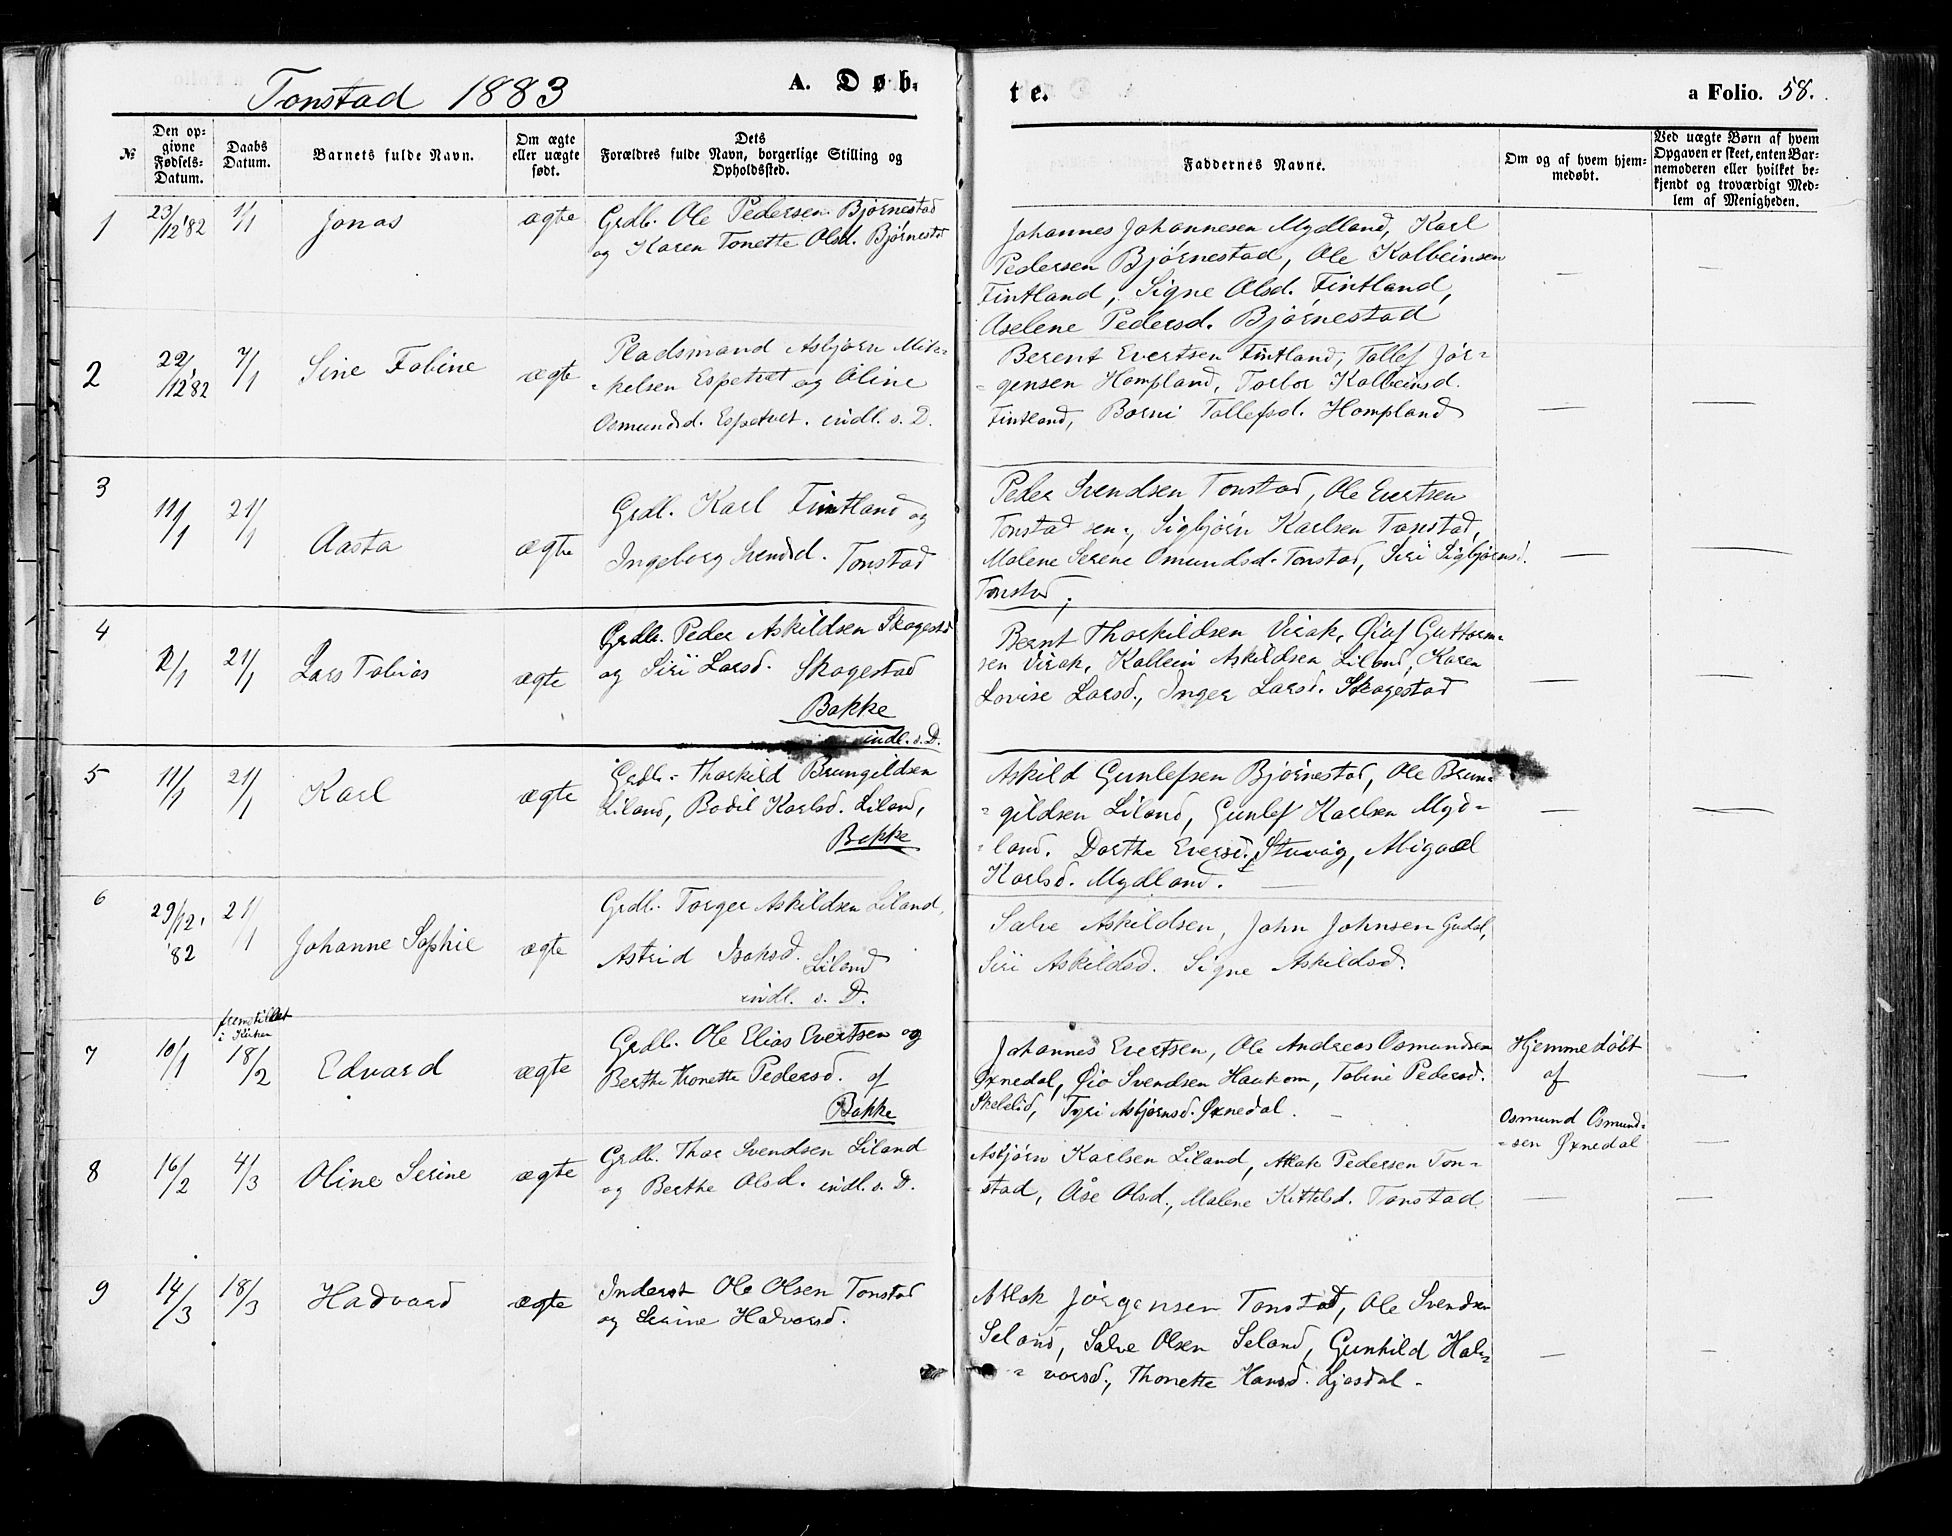 Tonstad 1883
A. Døb-
te.
a Folio. 58.
№
Den op-
givne
Fødsels-
Datum.
Daabs
Datum.
Barnets fulde Navn.
Om ægte
eller uægte
født.
Dets
Forældres fulde Navn, borgerlige Stilling og
Opholdssted.
Faddernes Navne.
Om og af hvem hjem-
medøbt.
Ved uægte Børn af hvem
Opgaven er skeet, enten Bar-
nemoderen eller hvilket be-
kjendt og troværdigt Med-
lem af Menigheden.
1
23/12 '82
1/1
Jonas
ægte
Grdb. Ole Pedersen Bjørnestad
og Karen Tonette Olsd. Bjørnestd
Johannes Johannesen Mydland, Karl
Pedersen Bjørnestad, Ole Kolbeinsen
Fintland, Signe Olsd. Fintland,
Aselene Pedersd. Bjørnestad
—
—
2
22/12 '82
7/1
Sine Tobine
ægte
Pladsmand Asbjørn Mik-
-kelsen Espetvet og Oline
Osmundsd. Espetvet. indl. s. D.
Berent Evertsen Fintland, Tollef Jør-
-gensen Hompland, Torbor Kolbeinsd.
Fintland, Borni Tollefsd. Hompland
—
—
3
11/1
21/1
Aasta
ægte
Grdb. Karl Fintland og
Ingeborg Svendsd. Tonstad
Peder Svendsen Tonstad, Ole Evertsen
Tonstad sen., Sigbjørn Karlsen Tonstad,
Malene Serene Omundsd. Tonstad, Siri Sigbjørnsd.
Tonstad.
—
—
4
2/1
21/1
Lars Tobias
ægte
Grdb. Peder Askildsen Skagestd
og Siri Larsd. Skagestad
Bakke
indl. s. D.
Bernt Thorkildsen Virak, Olaf Guttorm-
sen Virak, Kallein Askildsen Liland, Karen
Lovise Larsd., Inger Larsd. Skagestad
—
—
5
11/1
21/1
Karl
ægte
Grdb. Thorkild Brungildsen
Liland, Bodil Karlsd. Liland,
Bakke
Askild Gunlefsen Bjørnestad, Ole Brun-
-gildsen Liland, Gunlef Karlsen Myd-
-land. Dorthe Eversd. Stuvåg, Abigael
Karlsd. Mydland. —
—
—
6
29/12.
'82
21/1
Johanne Sophie
ægte
Grdb. Torger Askildsen Liland,
Astrid Isaksd. Liland
indl. s. D.
Salve Askildsen, John Johnsen Gudal,
Siri Askildsd. Signe Askildsd.
7
10/1
fremstillet
i Kirken
18/2
Edvard
ægte
Grdb. Ole Elias Evertsen og
Berthe Thonette Pedersd. af
Bakke
Johannes Evertsen, Ole Andreas Osmundsen
Øxnedal, Øio Svendsen Haukom, Tobine Pedersd.
Skeielid, Tyri Asbjørnsd. Øxnedal. —
Hjemmedøbt
af
Osmund Osmund-
-sen Øxnedal
—
—
8
16/2
4/3
Oline Serine
ægte
Grdb. Thor Svendsen Liland
og Berthe Olsd. indl. s. D.
Asbjørn Karlsen Liland, Atlak Pedersen Ton-
-stad, Åse Olsd., Malene Kittelsd. Tonstad
—
—
9
14/3
18/3
Hadvard
ægte
Inderst Ole Olsen Tonstad
og Serine Halvorsd.
Atlak Jørgensen Tonstad, Ole Svendsen
Seland, Salve Olsen Seland, Gunhild Hal-
-vorsd., Thonette Hansd. Ljosdal -
—
—